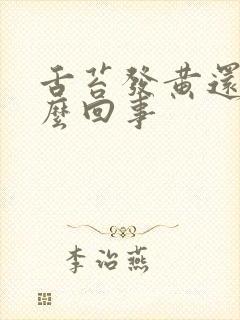 舌苔發黄還
麼回事
李治燕